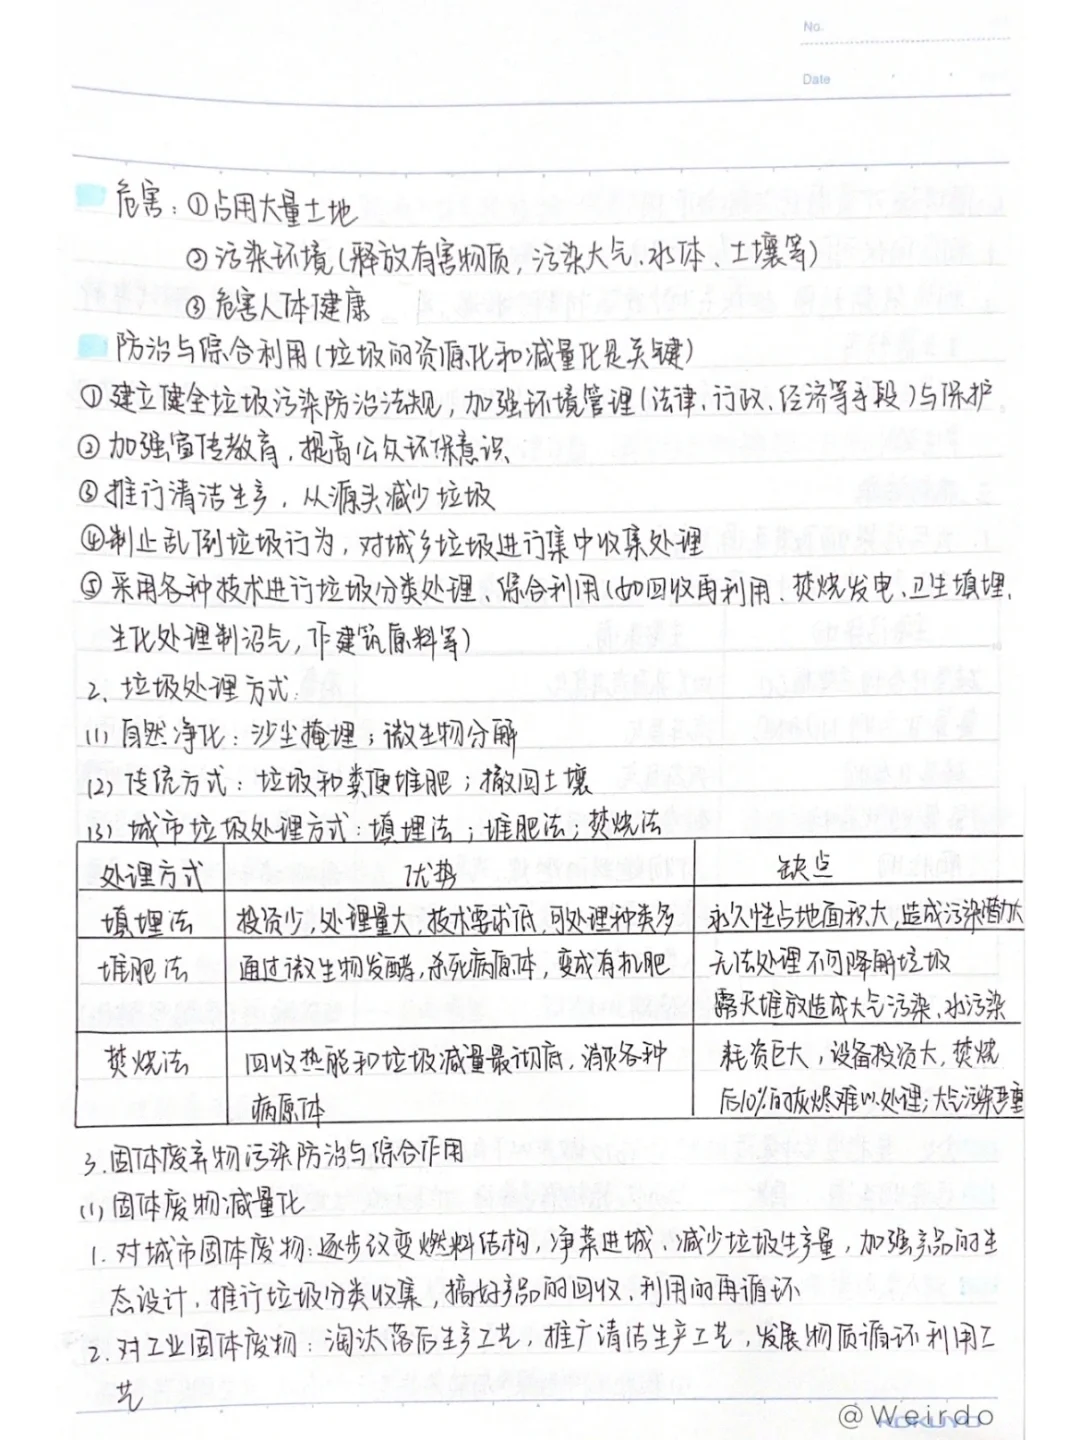 No.
Date
危害：①占用大量土地
②污染环境（释放有害物质，污染大气、水体、土壤等）
③危害人体健康
防治与综合利用（垃圾的资源化和减量化是关键）
①建立健全垃圾污染防治法规，加强环境管理（法律、行政、经济等手段）与保护
②加强宣传教育，提高公众环保意识
③推行清洁生产，从源头减少垃圾
④制止乱倒垃圾行为，对城乡垃圾进行集中收集处理
⑤采用各种技术进行垃圾分类处理、综合利用（如回收再利用、焚烧发电、卫生填埋、
生化处理制沼气，作建筑原料等）
2. 垃圾处理方式：
(1) 自然净化：沙尘掩埋；微生物分解
(2) 传统方式：垃圾和粪便堆肥；撒回土壤
(3) 城市垃圾处理方式：填埋法；堆肥法；焚烧法
处理方式 优势 缺点
填埋法 投资少，处理量大，技术要求低，可处理种类多 永久性占地面积大，造成污染潜力大
堆肥法 通过微生物发酵，杀死病原体，变成有机肥 无法处理不可降解垃圾
露天堆放造成大气污染、水污染
焚烧法 回收热能和垃圾减量最彻底，消灭各种 耗资巨大，设备投资大，焚烧
病原体 后10%的灰烬难以处理；大气污染严重
3. 固体废弃物污染防治与综合作用
(1) 固体废物减量化
1. 对城市固体废物：逐步改变燃料结构，净菜进城、减少垃圾生产量，加强产品的生
态设计，推行垃圾分类收集，搞好产品的回收、利用的再循环
2. 对工业固体废物：淘汰落后生产工艺，推广清洁生产工艺，发展物质循环利用工
艺
@Weirdo
KOKUYO